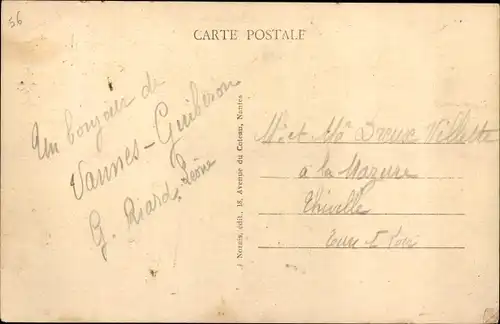 56
CARTE POSTALE
Un bonjour de
Vannes - Quiberon
G. Riard, Léone
J. Nozais, édit., 18, Avenue du Coteau, Nantes
Mr et Me Dreux Villette
à la Mazure
Thiville
Eure & Loir